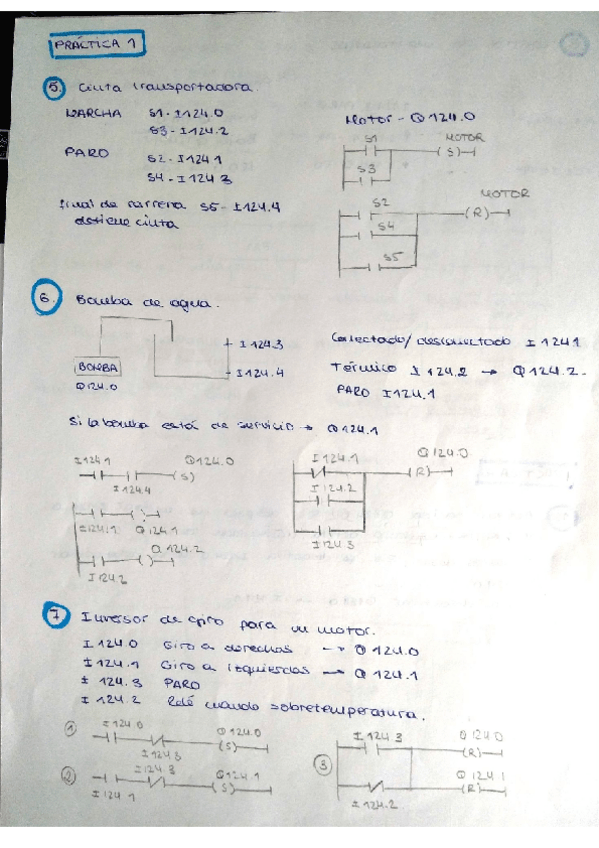 PRÁCTICA 1
5. Cinta transportadora.
MARCHA S1 - I124.0
S3 - I124.2
Motor - Q124.0
PARO S2 - I124.1
S4 - I124.3
final de carrera S5 - I124.4
detiene cinta
S1 MOTOR
(S)
S3
S2 MOTOR
(R)
S4
S5
6. Bomba de agua.
I124.3
I124.4
BOMBA
Q124.0
Conectado/desconectado I124.1
Térmico I124.2 → Q124.2.
PARO I124.1
Si la bomba está de servicio → Q124.1
I124.1 Q124.0
(S)
I124.4
I124.1 Q124.1
Q124.2
I124.2
I124.1 Q124.0
(R)
I124.2
I124.3
7. Inversor de giro para un motor.
I124.0 Giro a derechas → Q124.0
I124.1 Giro a izquierdas → Q124.1
I124.3 PARO
I124.2 Relé cuando sobretemperatura.
1 I124.0 Q124.0
(S)
I124.3
2 I124.3 Q124.1
(S)
I124.1
3 I124.3 Q124.0
(R)
Q124.1
(R)
I124.2